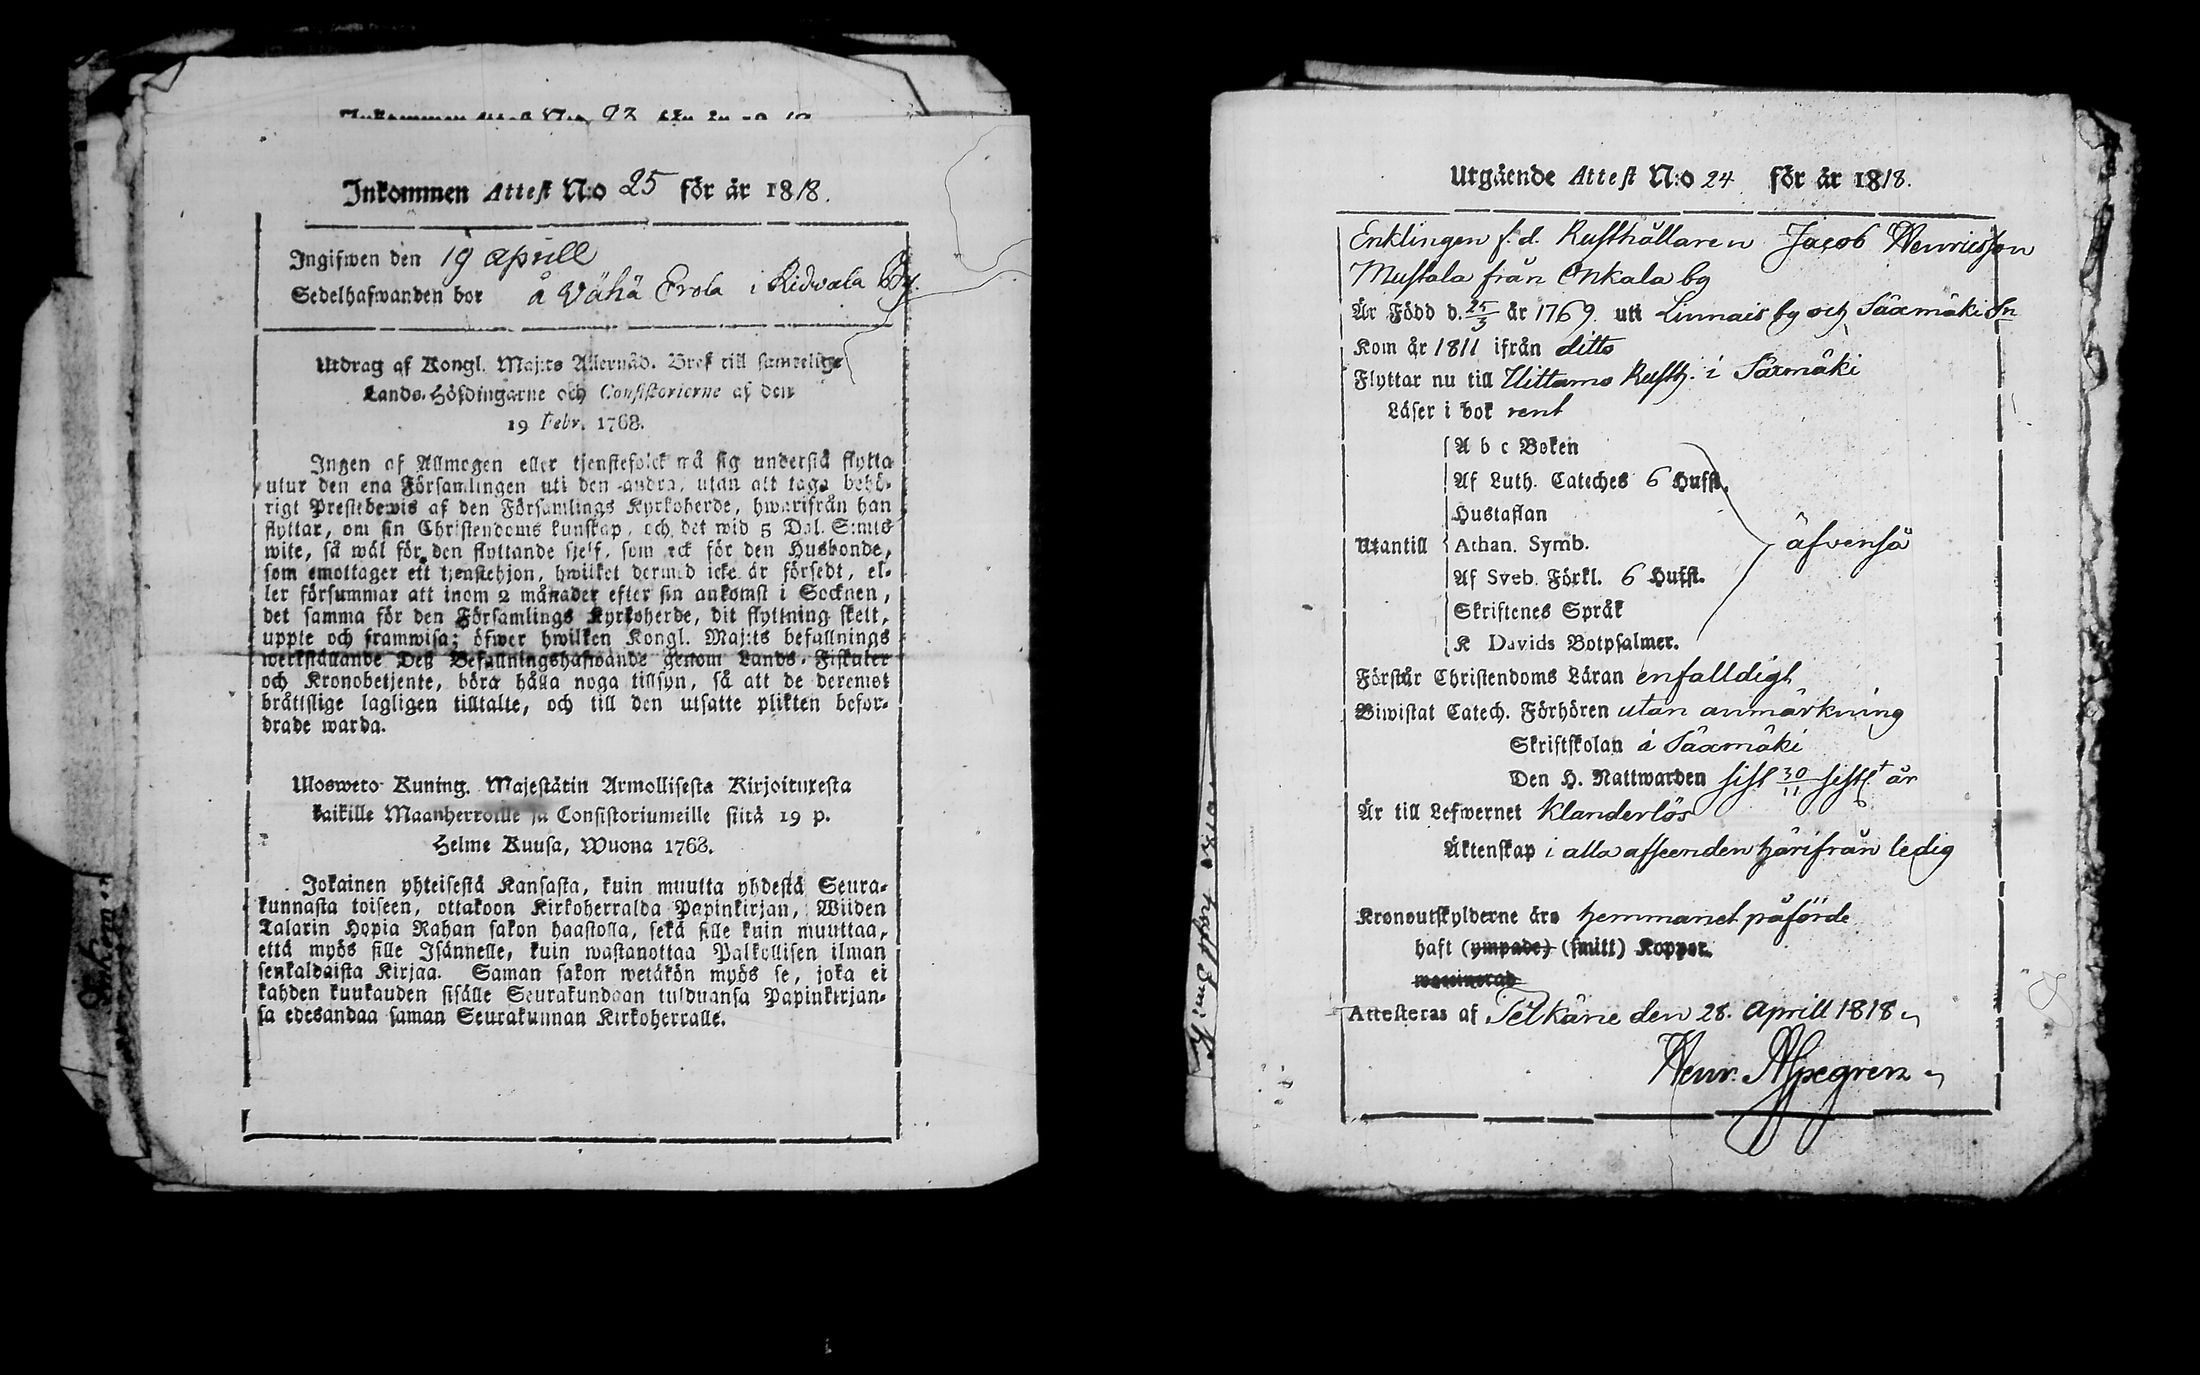 Inkommen Attest N:o 25 för år 1818.
Ingifwen den 19 aprill
Sedelhafwanden bor å Vähä Erola i Ridvala By.
Utdrag af Kongl. Maj:ts Allernåd. Bref till samtelige
Lands-Höfdingarne och Consistorierne af den
19 Febr. 1768.
Ingen af Allmogen eller tjenstefolck må sig understå flytta
utur den ena Församlingen uti den andra, utan att taga behö-
rigt Prestebewis af den Församlings Kyrkoherde, hwarifrån han
flyttar, om sin Christendoms kunskap, och det wid 5 Dal. S:mts
wite, så wäl för den flyttande sjelf, som ock för den Husbonde,
som emottager ett tjenstehjon, hwilket dermed icke är försedt, el-
ler försummar att inom 2 månader efter sin ankomst i Socknen,
det samma för den Församlings Kyrkoherde, dit flyttning skett,
uppte och framwisa; öfwer hwilken Kongl. Maj:ts befallnings
werkställande Deß Befallningshafwande genom Lands-Fiskaler
och Kronobetjente, böra hålla noga tillsyn, så att de deremot
bråttslige lagligen tilltalte, och till den utsatte plikten befor-
drade warda.
Uloswero Kuning. Majestätin Armollisesta Kirjoituxesta
kaikille Maanherroille ja Consistoriumeille siitä 19 p.
Helme Kuusa, Wuona 1768.
Jokainen yhteisestä Kansasta, kuin muutta yhdestä Seura-
kunnasta toiseen, ottakoon Kirkoherralda Papinkirjan, Wiiden
Talarin Hopia Rahan sakon haastolla, sekä sille kuin muuttaa,
että myös sille Isännelle, kuin wastanottaa Palkollisen ilman
senkaldaista Kirjaa. Saman sakon wetäkön myös se, joka ei
kahden kuukauden sisälle Seurakundaan tulduansa Papinkirjan-
sa edesandaa saman Seurakunnan Kirkoherralle.
Utgående Attest N:o 24 för år 1818.
Enklingen f.d. Rusthållaren Jacob Henricsson
Mustala från Onkala by
Är Född d. 25/3 år 1769. uti Linnais by och Säxmäki Sn
Kom år 1811 ifrån ditto
Flyttar nu till Uittamo Rusth. i Säxmäki
Läser i bok rent
A b c Boken
Af Luth. Cateches 6 Hufst.
Hustaflan
Utantill Athan. Symb. äfvenså
Af Sveb. Förkl. 6 Hufst.
Skriftenes Språk
K Davids Botpsalmer.
Förstår Christendoms Läran enfalldigt
Biwistat Catech. Förhören utan anmärkning
Skriftskolan i Säxmäki
Den H. Nattwarden sist 30/11 sistl. år
Är till Lefwernet Klanderlös
Äktenskap i alla afseenden härifrån ledig
Kronoutskylderne äro hemmanet påförde
haft (ympade) (smitt) Koppor.
waccinerad
Attesteras af Pelkäne den 28. Aprill 1818
Henr. Alpegren